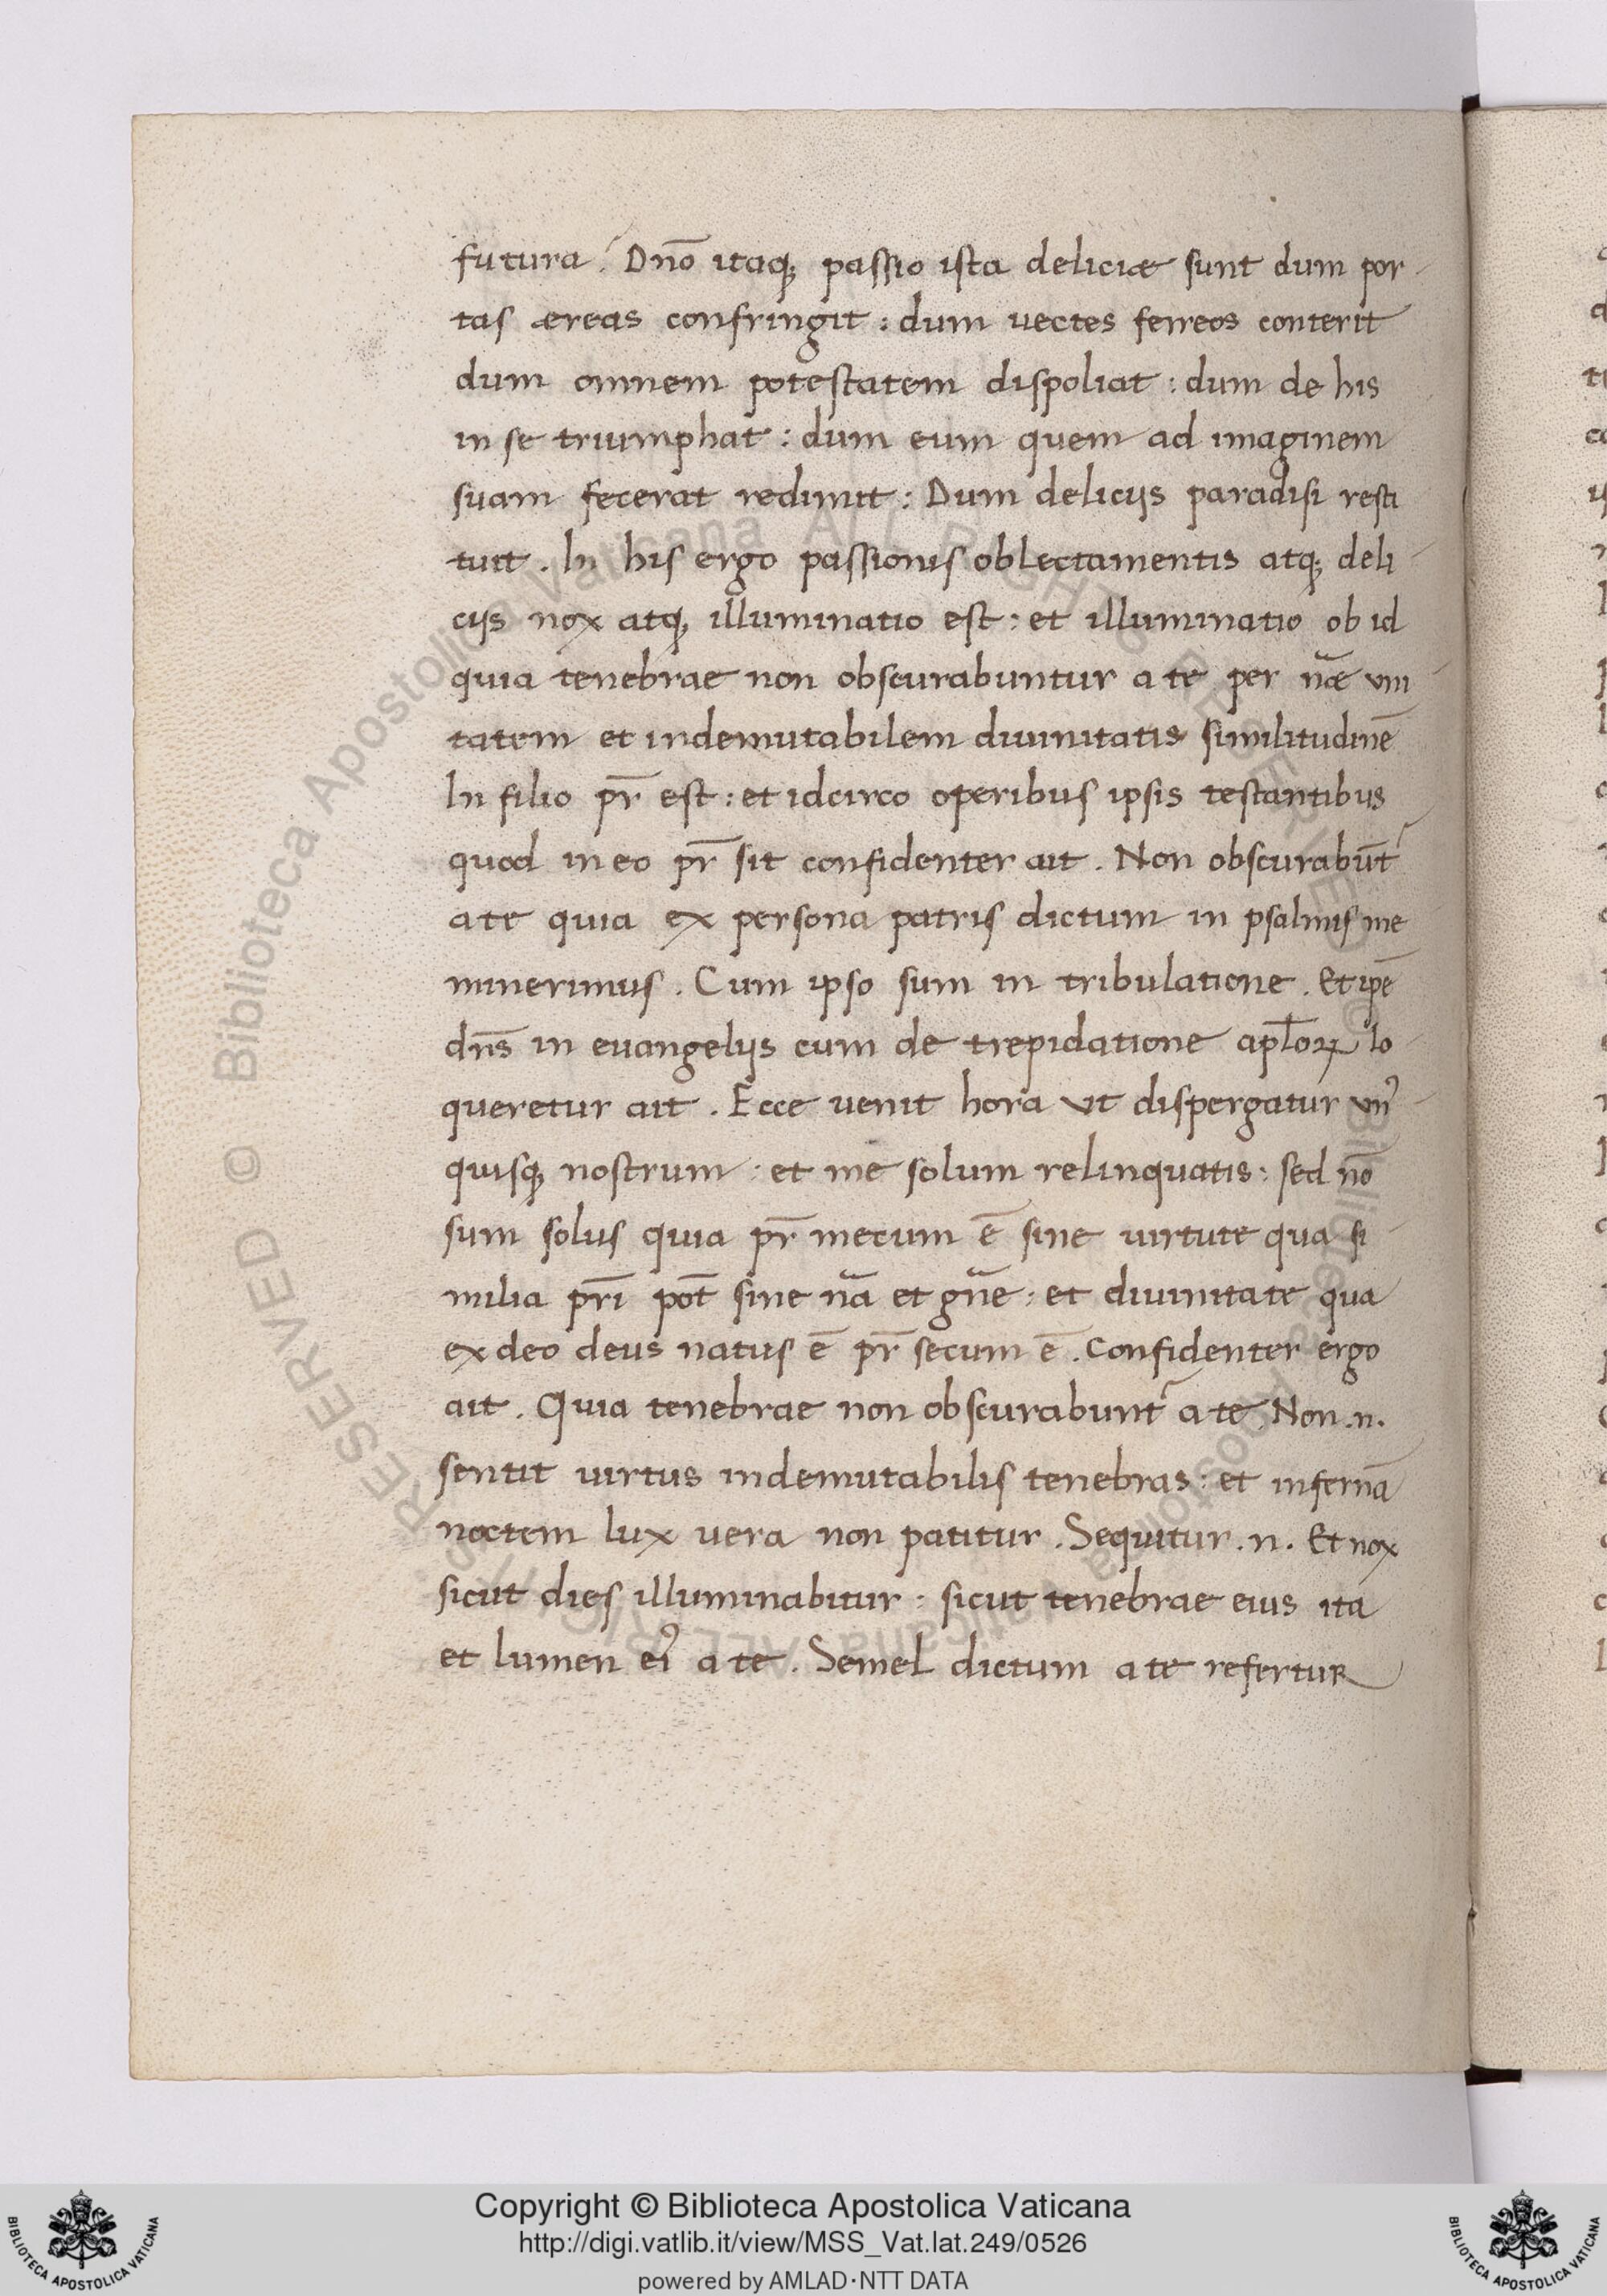 futura. Dnō itaq; passio ista deliciæ sunt dum por
tas æreas confringit : dum uectes ferreos conterit
dum omnem potestatem dispoliat : dum de his
in se triumphat : dum eum quem ad imaginem
suam fecerat redimit : Dum deliciis paradisi resti
tuit . In his ergo passionis oblectamentis atq; deli
ciis nox atq; illuminatio est : et illuminatio ob id
quia tenebrae non obscurabuntur a te per nāe vni
tatem et indemutabilem diuinitatis similitudinē
In filio pr̄ est : et idcirco operibus ipsis testantibus
quod in eo pr̄ sit confidenter ait . Non obscurabūt᷑
a te quia ex persona patris dictum in psalmis me
minerimus . Cum ipso sum in tribulatione . Et ip̄e
dn̄s in euangeliis cum de trepidatione apl̄oꝝ lo
queretur ait . Ecce uenit hora vt dispergatur vnꝰ
quisq; nostrum : et me solum relinquatis : sed nō
sum solus quia pr̄ mecum ē sine uirtute qua si
milia pr̄i pōt sine nā et gn̄e : et diuinitate qua
ex deo deus natus ē pr̄ secum ē . Confidenter ergo
ait . Quia tenebrae non obscurabunt᷑ a te . Non .n.
sentit uirtus indemutabilis tenebras : et infernā
noctem lux vera non patitur . Sequitur .n. Et nox
sicut dies illuminabitur : sicut tenebrae eius ita
et lumen eiꝰ a te . Semel dictum a te refertur
Copyright © Biblioteca Apostolica Vaticana
http://digi.vatlib.it/view/MSS_Vat.lat.249/0526
powered by AMLAD·NTT DATA
BIBLIOTECA APOSTOLICA VATICANA
BIBLIOTECA APOSTOLICA VATICANA